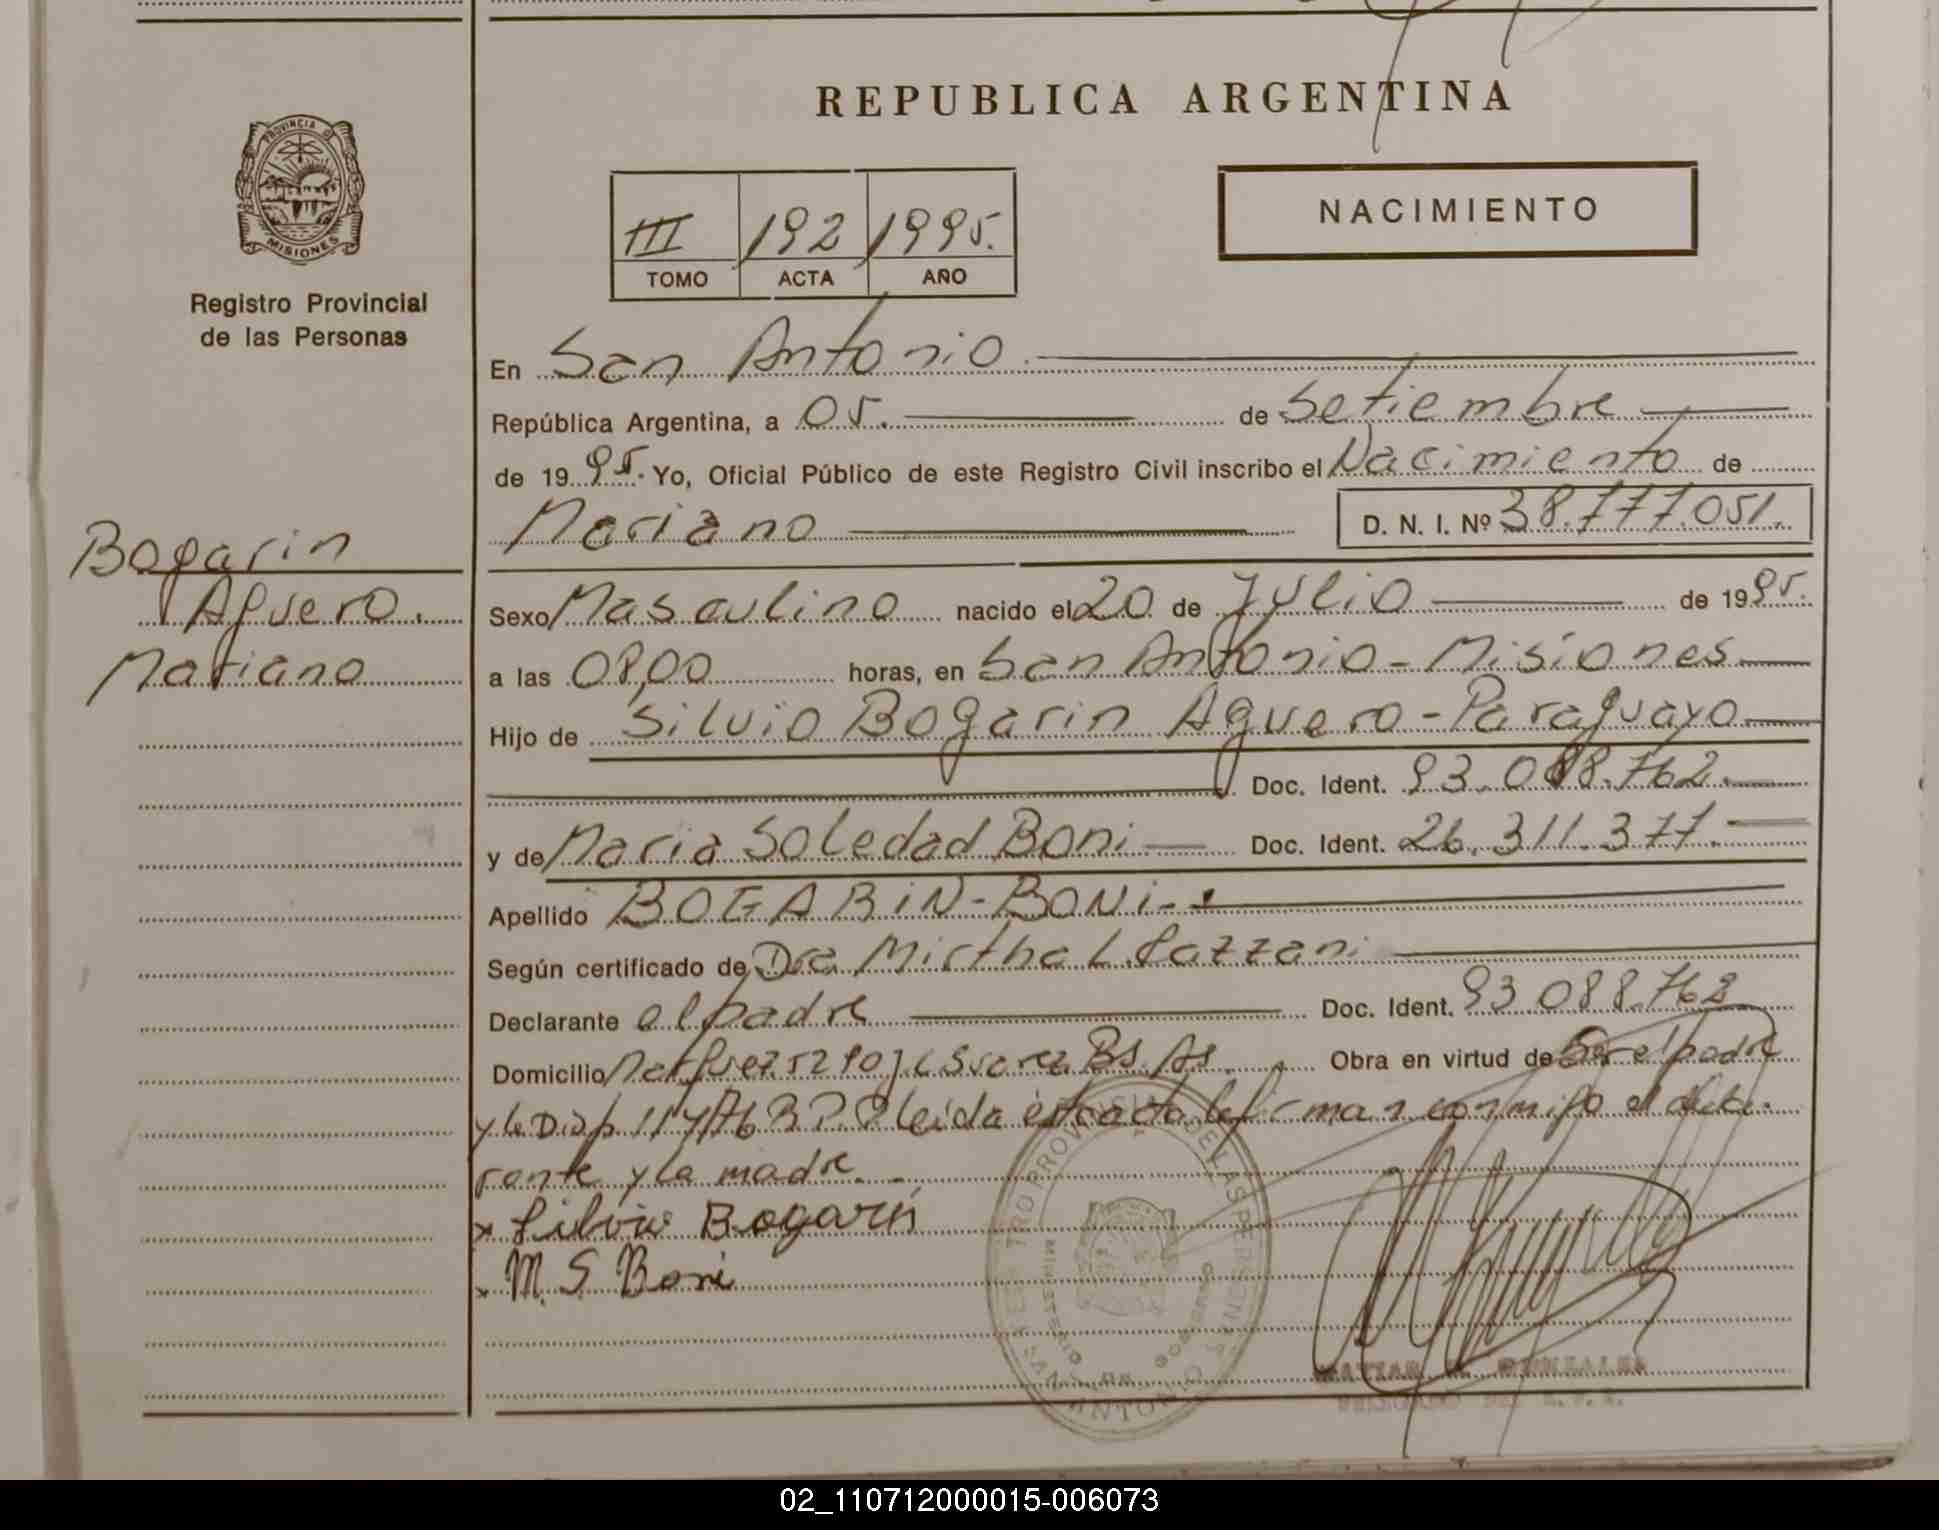 REPUBLICA ARGENTINA
PROVINCIA D
MISIONES
Registro Provincial
de las Personas
III 192 1995.
TOMO ACTA AÑO
NACIMIENTO
En San Antonio.
República Argentina, a 05. de Setiembre
de 1995. Yo, Oficial Público de este Registro Civil inscribo el Nacimiento de
Mariano D. N. I. Nº 38.777.051.
Bogarin
Aguero.
Mariano
Sexo Masculino nacido el 20 de Julio de 1995.
a las 08,00 horas, en San Antonio - Misiones
Hijo de Silvio Bogarin Aguero - Paraguayo
Doc. Ident. 93.088.762.
y de Maria Soledad Boni Doc. Ident. 26.311.377.
Apellido BOGARIN-BONi-
Según certificado de Dra Mirtha L.
Declarante el padre Doc. Ident. 93 088.762
Domicilio Bs. As. Obra en virtud de Ser el padre
y la Disp. R.P.P. Leida esta acta la firman conmigo el decla
rante y la madre.
x Silvio Bogarin
x M. S. Boni
REGISTRO PROVINCIAL DE LAS PERSONAS
MINISTERIO DE GOBIERNO
SAN ANTONIO
02_110712000015-006073